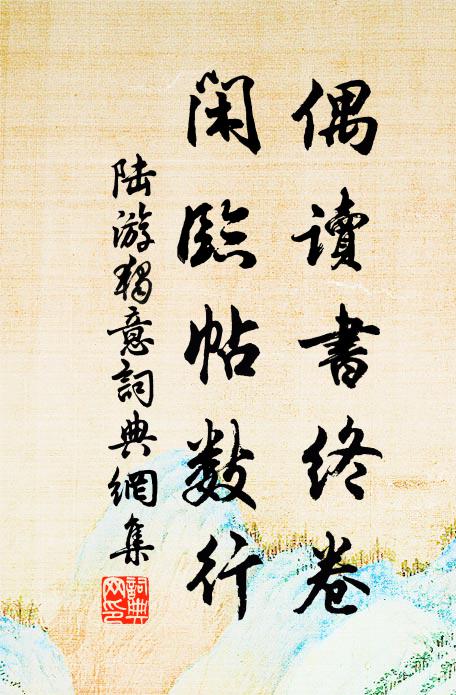 偶讀書終卷
閑臨帖數行
陸游獨意詞典網集
詞典